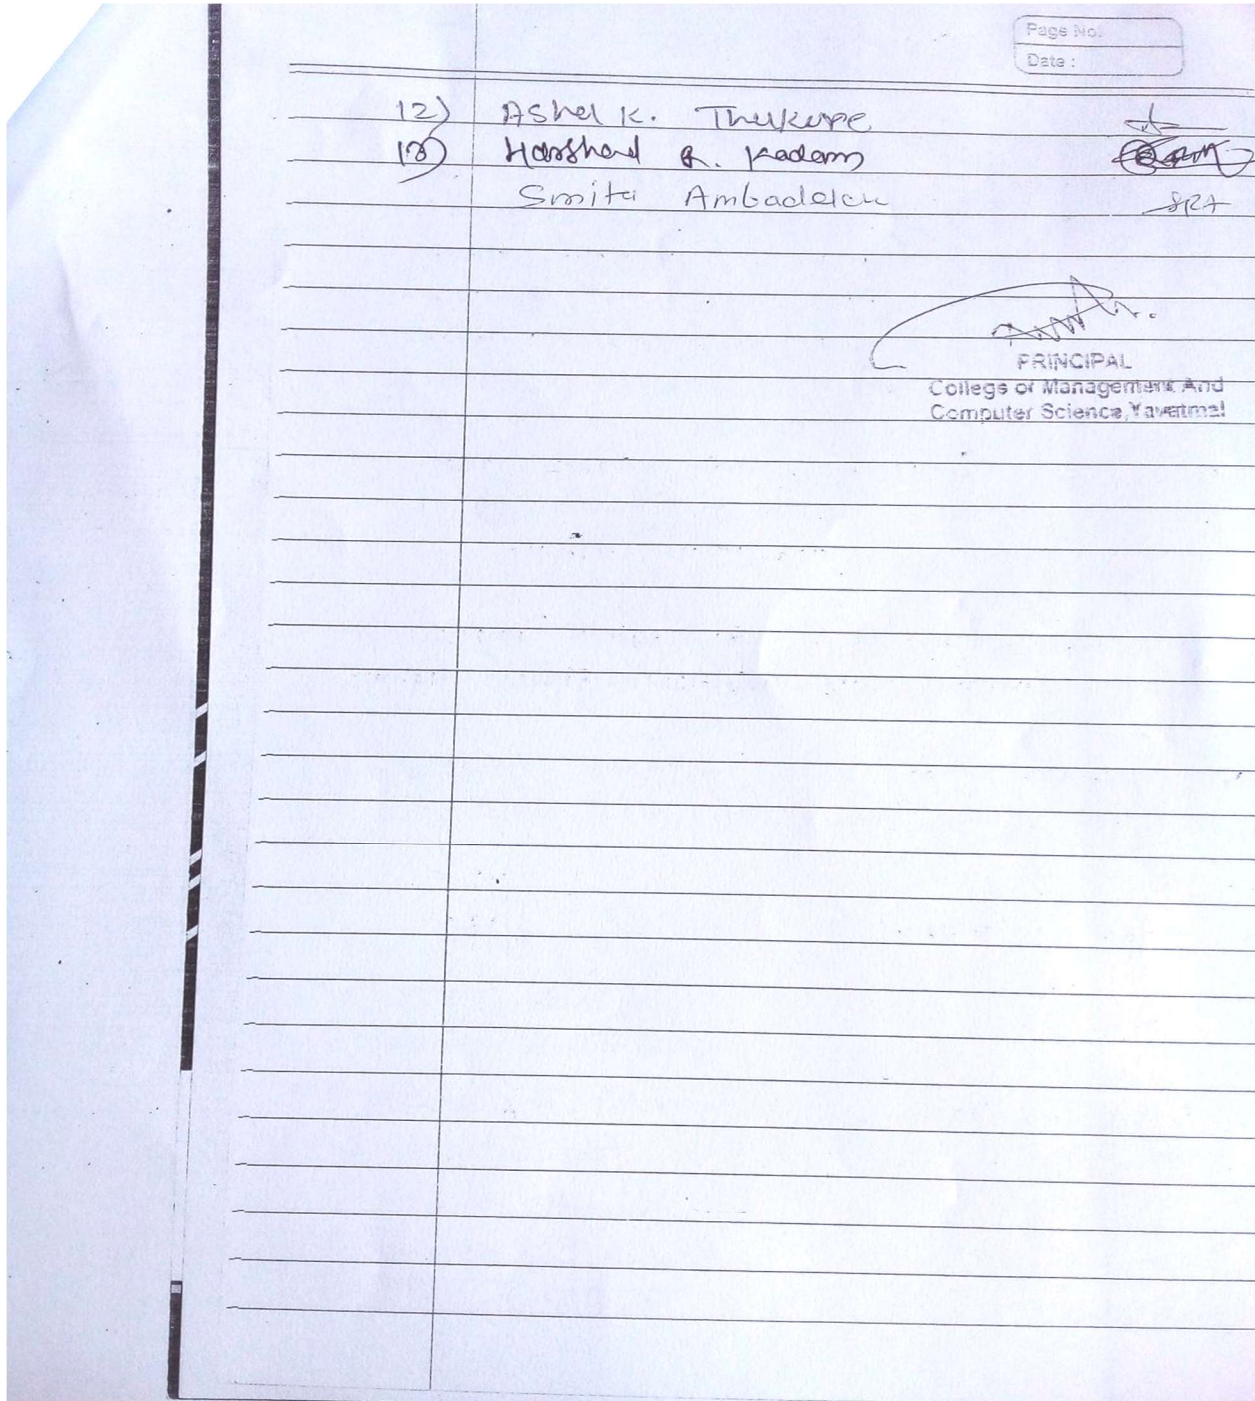 Page No.
Date :
12) Ashok K. Thakare
13) Harshad R. Kadam
Smita Ambadekar
SRA
PRINCIPAL
College of Management And
Computer Science, Yavatmal